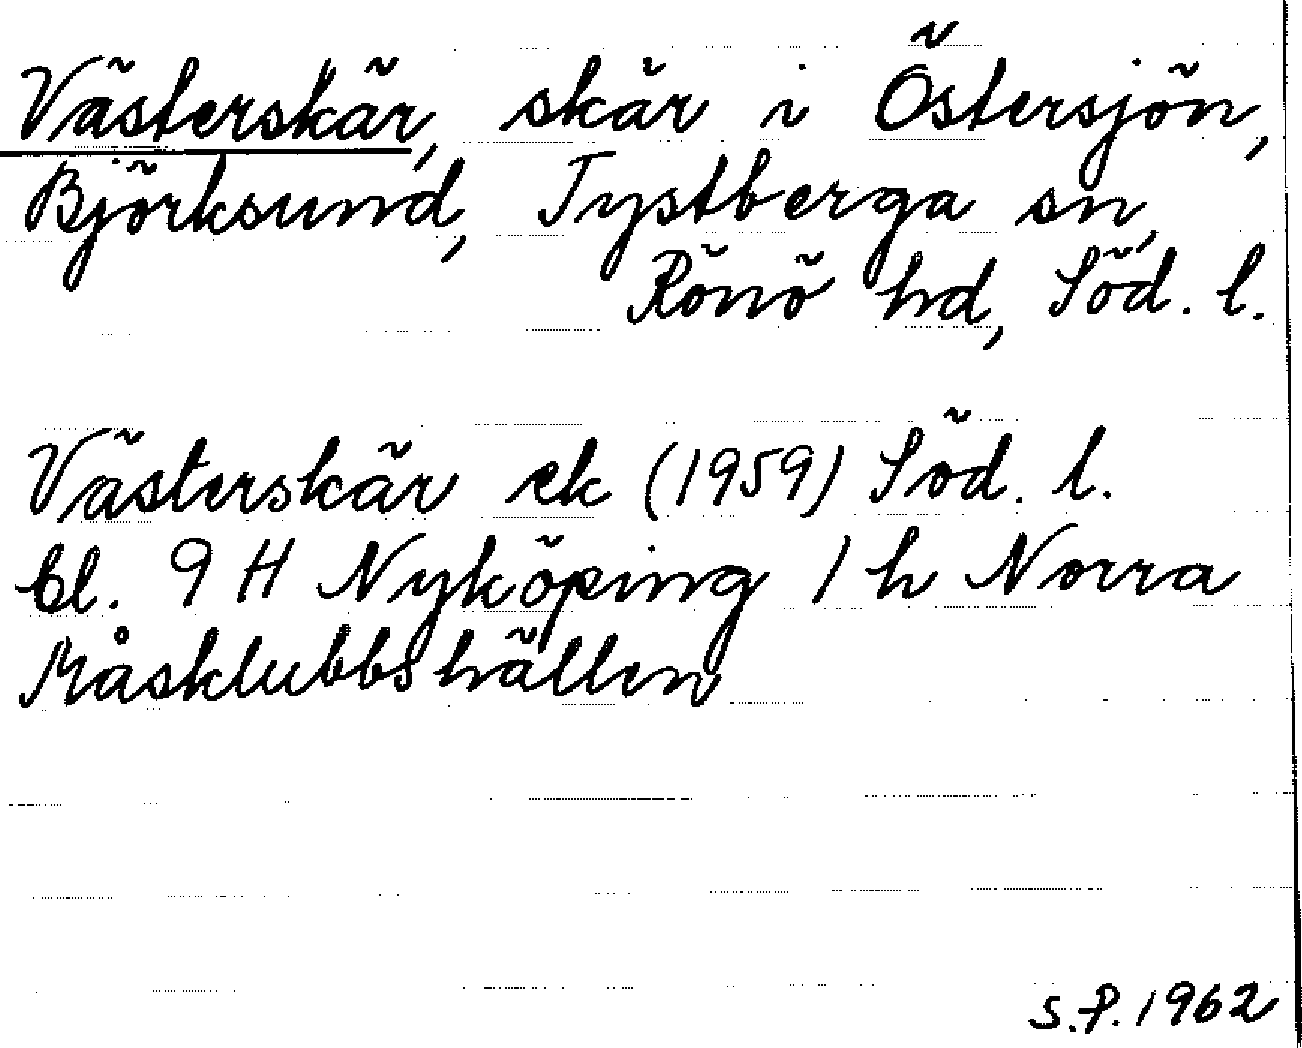 Västerskär, skär i Östersjön,
Björksund, Tystberga sn,
Rönö hd, Söd. l.
Västerskär ek (1959) Söd. l.
bl. 9 H Nyköping 1 h Norra
Måsklubbshällen
S.P. 1962